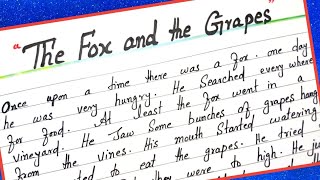 "The Fox and the Grapes"
Once upon a time there was a fox. one day
he was very hungry. He Searched every where
for food. At least the fox went in a
vineyard. He Saw Some bunches of grapes hang
from the vines. His mouth Started watering
to eat the grapes. He tried
they were to high. He ju